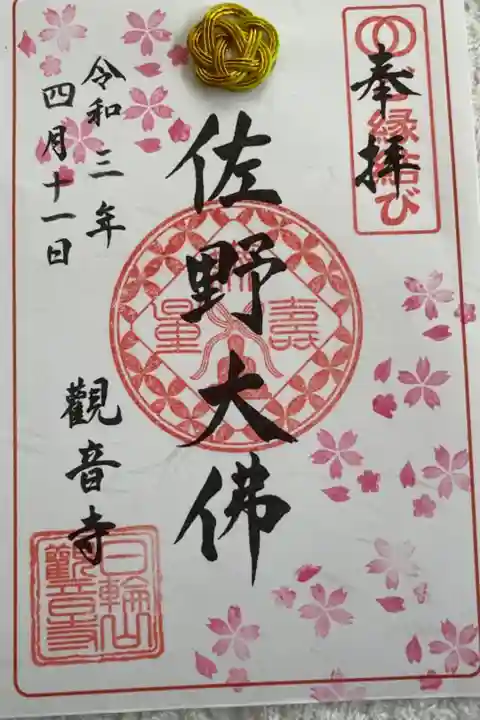 奉拝
ご縁結び
佐野大佛
無量壽
令和三年
四月十一日
觀音寺
日輪山
觀音寺